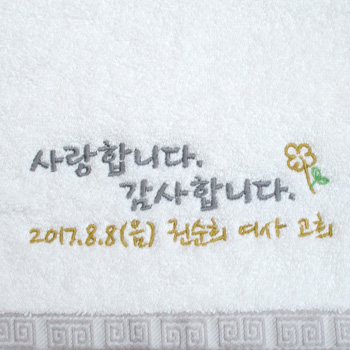 사랑합니다.
감사합니다.
2017.8.8(음) 권순희 여사 고희